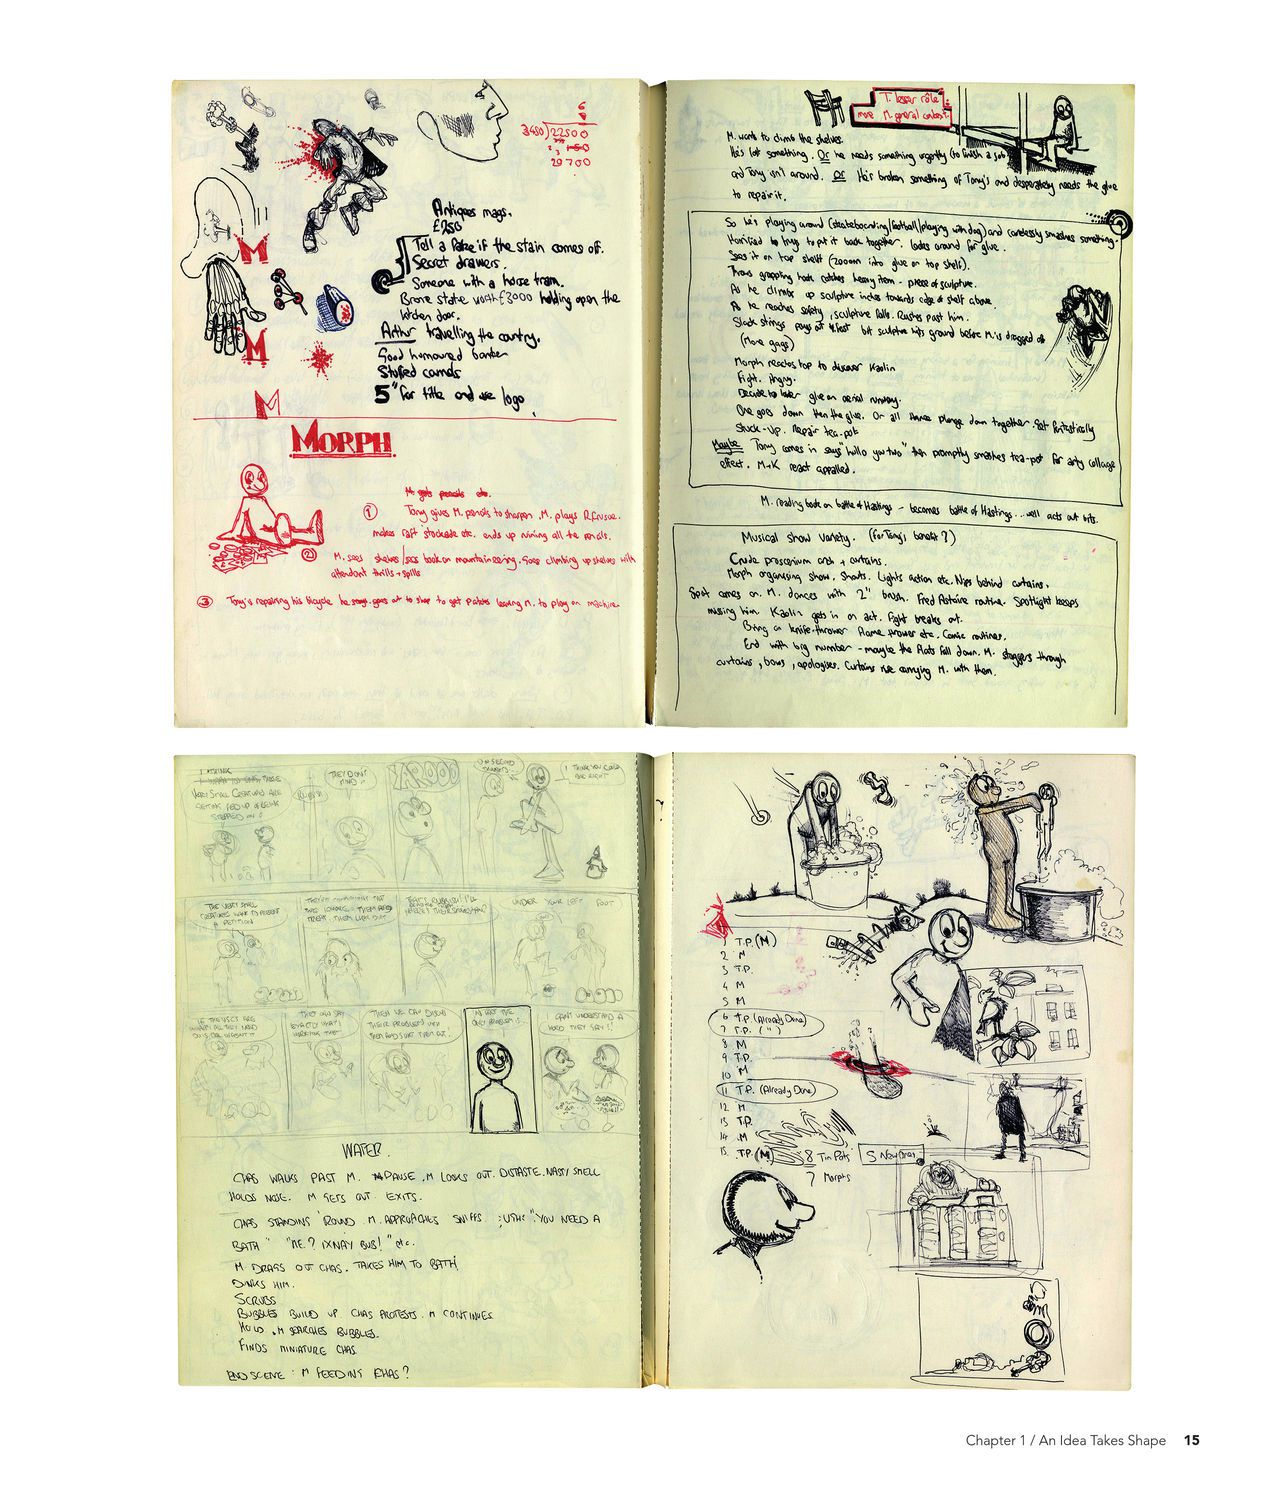 6
22500
20700
Antiques mags.
£250
Tell a fake if the stain comes off.
Secret drawers.
Someone with a horse tram.
worth £3000 holding open the
door.
Arthur travelling the country.
Good humoured banter
Stuffed camels
5" for title and use logo
M
M
M
MORPH
M. gets pencils etc.
① Tony gives M. pencils to sharpen. M. plays R.Crusoe.
makes raft stockade etc. ends up ruining all the pencils.
② M. sees shelves/sees book on mountaineering. Goes climbing up shelves with
attendant thrills + spills
③ Tony's repairing his bicycle he goes out to shop to get patches leaving M. to play on machine.
T. lesser rôle
more M. general content.
M. wants to climb the shelves.
He's lost something. Or he needs something urgently (to finish a job
and Tony isn't around. Or He's broken something of Tony's and desperately needs the glue
to repair it.
So he's playing around (skateboarding/football/playing with dog) and carelessly smashes something.
Horrified he trys to put it back together. looks around for glue.
Sees it on top shelf (Zoom into glue on top shelf).
Throws grappling hook catches heavy item - piece of sculpture.
As he climbs up sculpture inches towards edge of shelf above.
As he reaches safety, sculpture falls. Rushes past him.
Slack strings pays out fast but sculpture hits ground before M. is dragged off
(More gags)
Morph reaches top to discover Kaolin
Fight. Angry.
Decide to lower glue on aerial runway.
One goes down then the glue. Or all three plunge down together. Get fantastically
stuck-up. Repair tea-pot
Maybe Tony comes in says "hello you two" then promptly smashes tea-pot for arty collage
effect. M+K react appalled.
M. reading book on battle of Hastings - becomes battle of Hastings... well acts out bits.
Musical show variety. (for Tony's benefit?)
Crude proscenium arch + curtains.
Morph organising show. Shouts. Lights action etc. Nips behind curtains.
Spot comes on. M. dances with 2" brush. Fred Astaire routine. Spotlight keeps
missing him. Kaolin gets in on act. Fight breaks out.
Bring on knife-thrower flame thrower etc. Comic routines.
End with big number - maybe the flats fall down. M. staggers through
curtains, bows, apologises. Curtains rise carrying M. with them.
I THINK
THESE
VERY SMALL CREATURES ARE
GETTING FED UP OF BEING
STEPPED ON!
THEY DON'T
MIND
RUBBISH
YAROOO
ON SECOND
THOUGHTS
I THINK YOU COULD
BE RIGHT
THE VERY SMALL
CREATURES WANT TO PRESENT
A PETITION
THAT'S RUBBISH! I'LL
UNDER YOUR LEFT FOOT
THEN WE CAN DISCUSS
THEIR PROBLEMS WITH
THEM AND SORT THEM OUT!
ONLY PROBLEM IS..
I CAN'T UNDERSTAND A
WORD THEY SAY!!
WATER.
CHAS WALKS PAST M. PAUSE. M LOOKS OUT. DISTASTE. NASTY SMELL
HOLDS NOSE. M GETS OUT EXITS.
CHAS STANDING 'ROUND M. APPROACHES SNIFFS "YOU NEED A
BATH" "ME? IXNAY BUB!" etc.
M DRAGS OUT CHAS. TAKES HIM TO BATH
DUNKS HIM.
SCRUBS
BUBBLES BUILD UP CHAS PROTESTS. M CONTINUES
HOLD. M SEARCHES BUBBLES.
FINDS MINIATURE CHAS
END SCENE : M FEEDING CHAS?
1 T.P. (M)
2 M
3 T.P.
4 M
5 M
6 T.P. (Already Done)
7 T.P. ( " )
8 M
9 T.P.
10 M
11 T.P. (Already Done)
12 M
13 T.P.
14 M
15. T.P. (M)
8 Tin Pots
7 Morphs
5 New Ones
Chapter 1 / An Idea Takes Shape 15